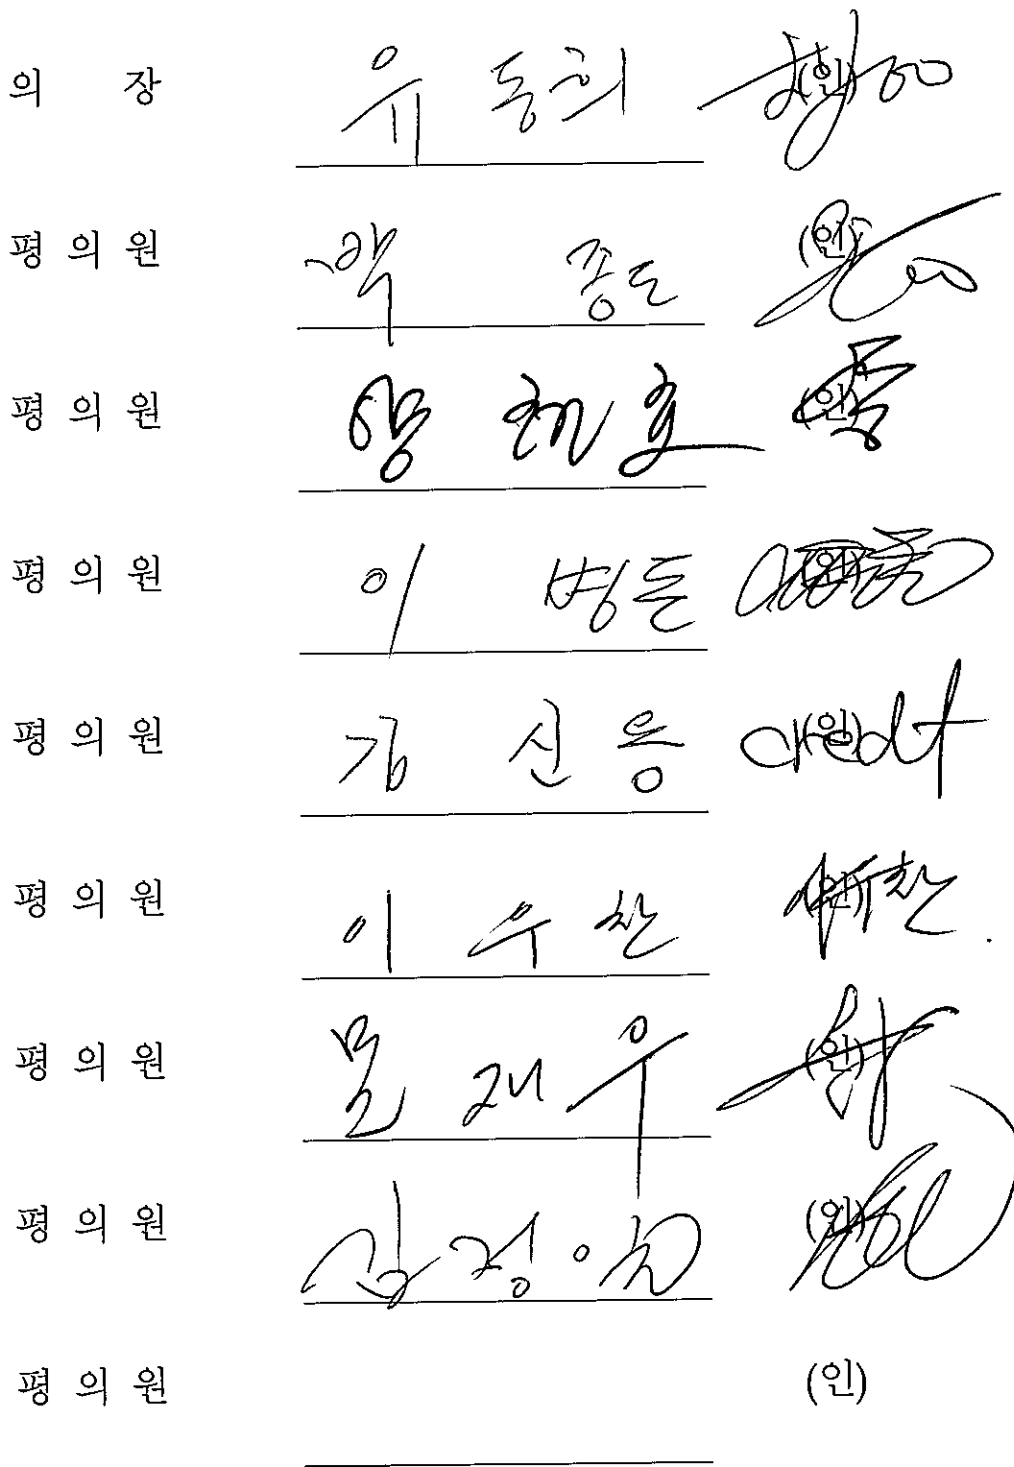 의 장 유 동희 (인)
평 의 원 백 종도 (인)
평 의 원 양 재호 (인)
평 의 원 이 병돈 (인)
평 의 원 김 신웅 (인)
평 의 원 이 우찬 (인)
평 의 원 문 재우 (인)
평 의 원 정 (인)
평 의 원 (인)